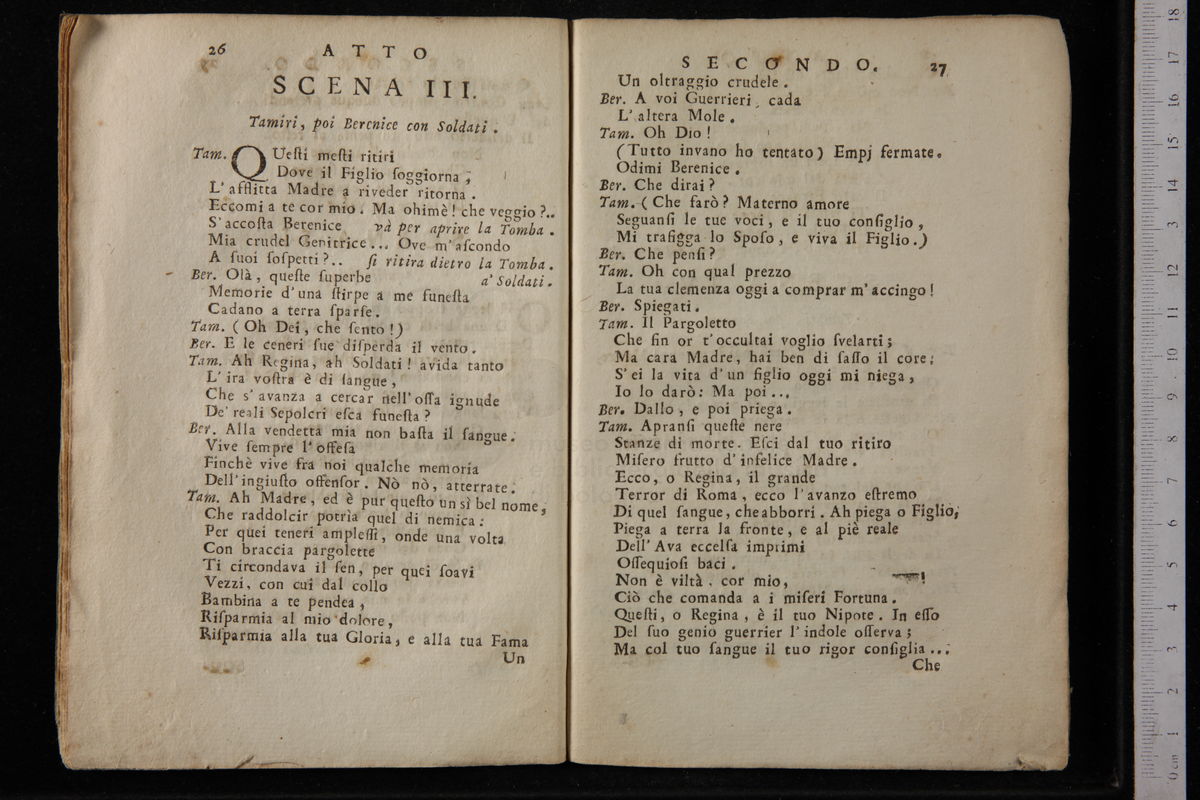 26 ATTO
SCENA III.
Tamiri, poi Berenice con Soldati.
Tam. QUeſti meſti ritiri
Dove il Figlio ſoggiorna,
L'afflitta Madre a riveder ritorna.
Eccomi a te cor mio. Ma ohimè! che veggio?..
S'accoſta Berenice và per aprire la Tomba.
Mia crudel Genitrice... Ove m'aſcondo
A ſuoi ſoſpetti?.. ſi ritira dietro la Tomba.
Ber. Olà, queſte ſuperbe a' Soldati.
Memorie d'una ſtirpe a me funeſta
Cadano a terra ſparſe.
Tam. (Oh Dei, che ſento!)
Ber. E le ceneri ſue diſperda il vento.
Tam. Ah Regina, ah Soldati! avida tanto
L'ira voſtra è di ſangue,
Che s'avanza a cercar nell'oſſa ignude
De' reali Sepolcri eſca funeſta?
Ber. Alla vendetta mia non baſta il ſangue.
Vive ſempre l'offeſa
Finchè vive fra noi qualche memoria
Dell'ingiuſto offenſor. Nò nò, atterrate.
Tam. Ah Madre, ed è pur queſto un sì bel nome,
Che raddolcir potrìa quel di nemica:
Per quei teneri ampleſſi, onde una volta
Con braccia pargolette
Ti circondava il ſen, per quei ſoavi
Vezzi, con cui dal collo
Bambina a te pendea,
Riſparmia al mio dolore,
Riſparmia alla tua Gloria, e alla tua Fama
Un
SECONDO. 27
Un oltraggio crudele.
Ber. A voi Guerrieri, cada
L'altera Mole.
Tam. Oh Dio!
(Tutto invano ho tentato) Empj fermate.
Odimi Berenice.
Ber. Che dirai?
Tam. (Che farò? Materno amore
Seguanſi le tue voci, e il tuo conſiglio,
Mi trafigga lo Spoſo, e viva il Figlio.)
Ber. Che penſi?
Tam. Oh con qual prezzo
La tua clemenza oggi a comprar m'accingo!
Ber. Spiegati.
Tam. Il Pargoletto
Che fin or t'occultai voglio ſvelarti;
Ma cara Madre, hai ben di ſaſſo il core;
S'ei la vita d'un figlio oggi mi niega,
Io lo darò: Ma poi...
Ber. Dallo, e poi priega.
Tam. Apranſi queſte nere
Stanze di morte. Eſci dal tuo ritiro
Miſero frutto d'infelice Madre.
Ecco, o Regina, il grande
Terror di Roma, ecco l'avanzo eſtremo
Di quel ſangue, che abborri. Ah piega o Figlio,
Piega a terra la fronte, e al piè reale
Dell'Ava eccelſa imprimi
Oſſequioſi baci.
Non è viltà, cor mio,
Ciò che comanda a i miſeri Fortuna.
Queſti, o Regina, è il tuo Nipote. In eſſo
Del ſuo genio guerrier l'indole oſſerva;
Ma col tuo ſangue il tuo rigor conſiglia...
Che
0 cm 1 2 3 4 5 6 7 8 9 10 11 12 13 14 15 16 17 18